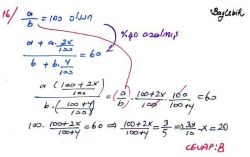 16/ a/b = 100 olsun
Baybibik
%40 azalmış
(a + a · 2x/100) / (b + b · y/100) = 60
a(100+2x/100) / b·(100+y/100) = (a/b) · 100+2x/100 · 100/100+y = 60
100 · 100+2x/100+y = 60 ⇒ 100+2x/100+y = 3/5 ⇒ 3y/10 - x = 20
CEVAP: B